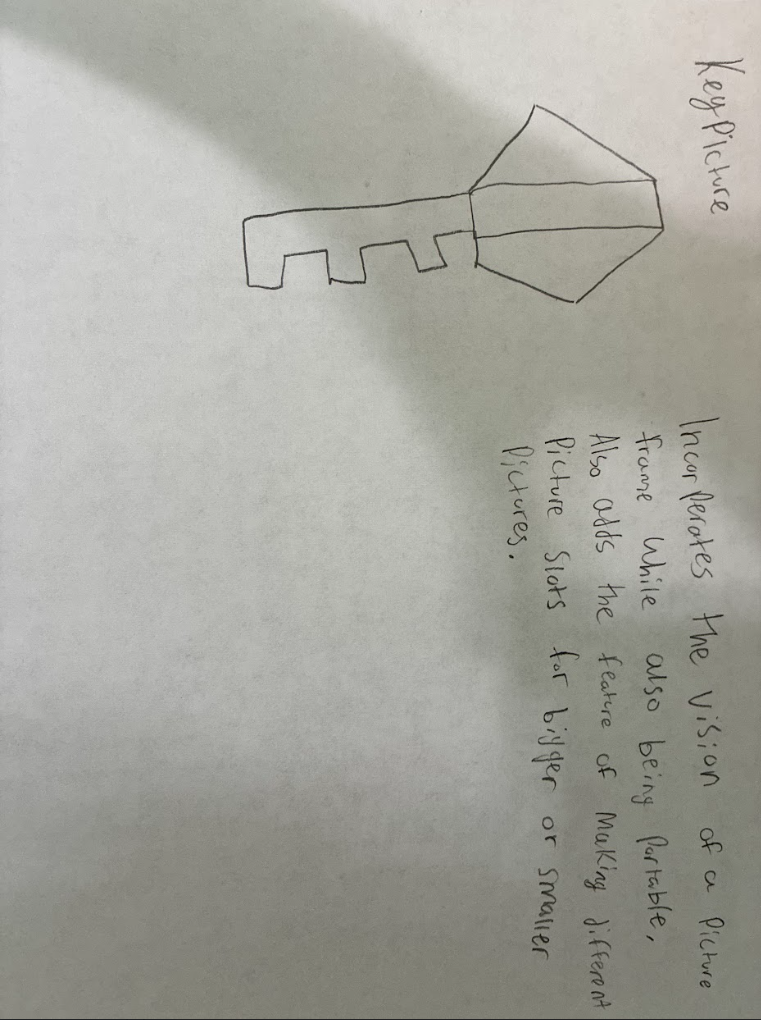 KeyPicture
Incorperates the vision of a Picture
frame while also being Portable,
Also adds the feature of Making different
Picture Slots for bigger or smaller
Pictures.